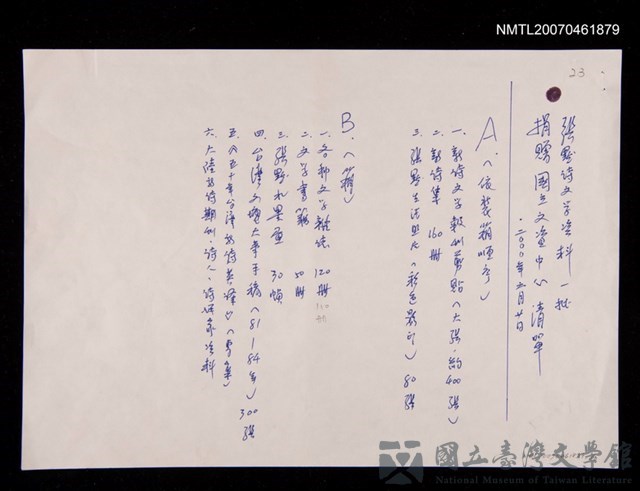 NMTL20070461879
23
張默詩文學資料一批
捐贈國立文資中心清單
二000年六月廿日
A、(依裝箱順序)
一、新詩文學報刊剪貼(大張,約400張)
二、新詩集 160冊
三、張默生活照片(彩色影印) 80張
B、(箱)
一、各種文學雜誌 120冊
二、文學書籍 50冊
三、張默水墨畫 30幀
四、台灣文壇大事手稿(81-84年) 300張
五、《五十年台灣新詩英譯》(專集)
六、大陸新詩期刊,詩人,詩評家資料
國立臺灣文學館
National Museum of Taiwan Literature